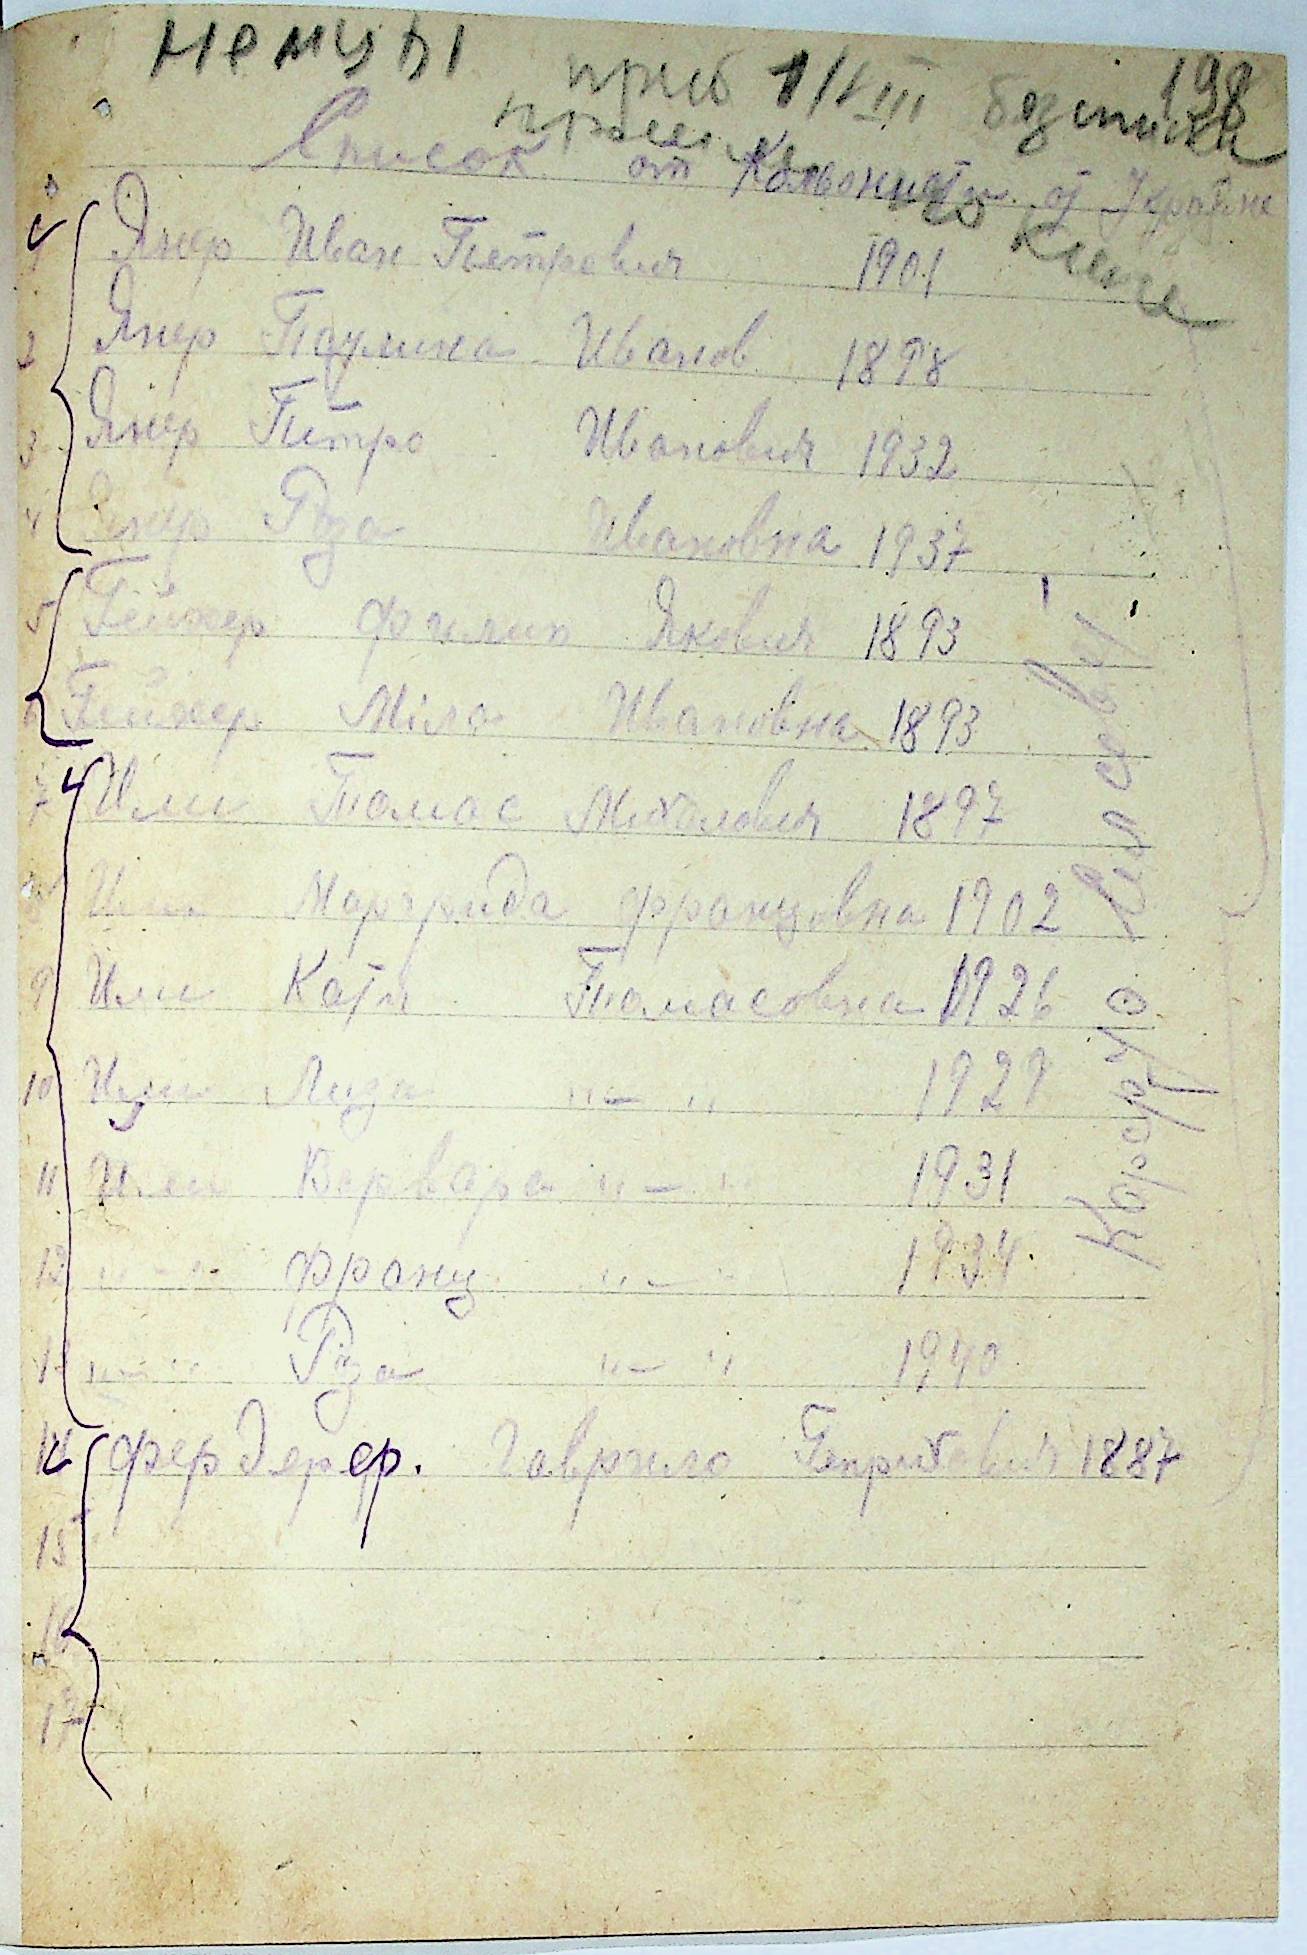 немцы
приб 1/VIII без списка
198
Список от Кольонистов от Украине
1 Янер Иван Петрович 1901
2 Янер Паулина Иванов 1898
3 Янер Питро Иванович 1932
4 Янер Роза Ивановна 1937
5 Гейжер Филип Якович 1893
6 Гейжер Міла Ивановна 1893
7 Или Томас Михалович 1897
8 Или Маргрида Францовна 1902
9 Или Катя Томасовна 1926
10 Или Лиза "–" 1929
11 Или Варвара "–" 1931
12 "–" Франц "–" 1934
"–" Роза "–" 1940
14 Фердерер. Гаврило Генрихович 1887
15
16
17